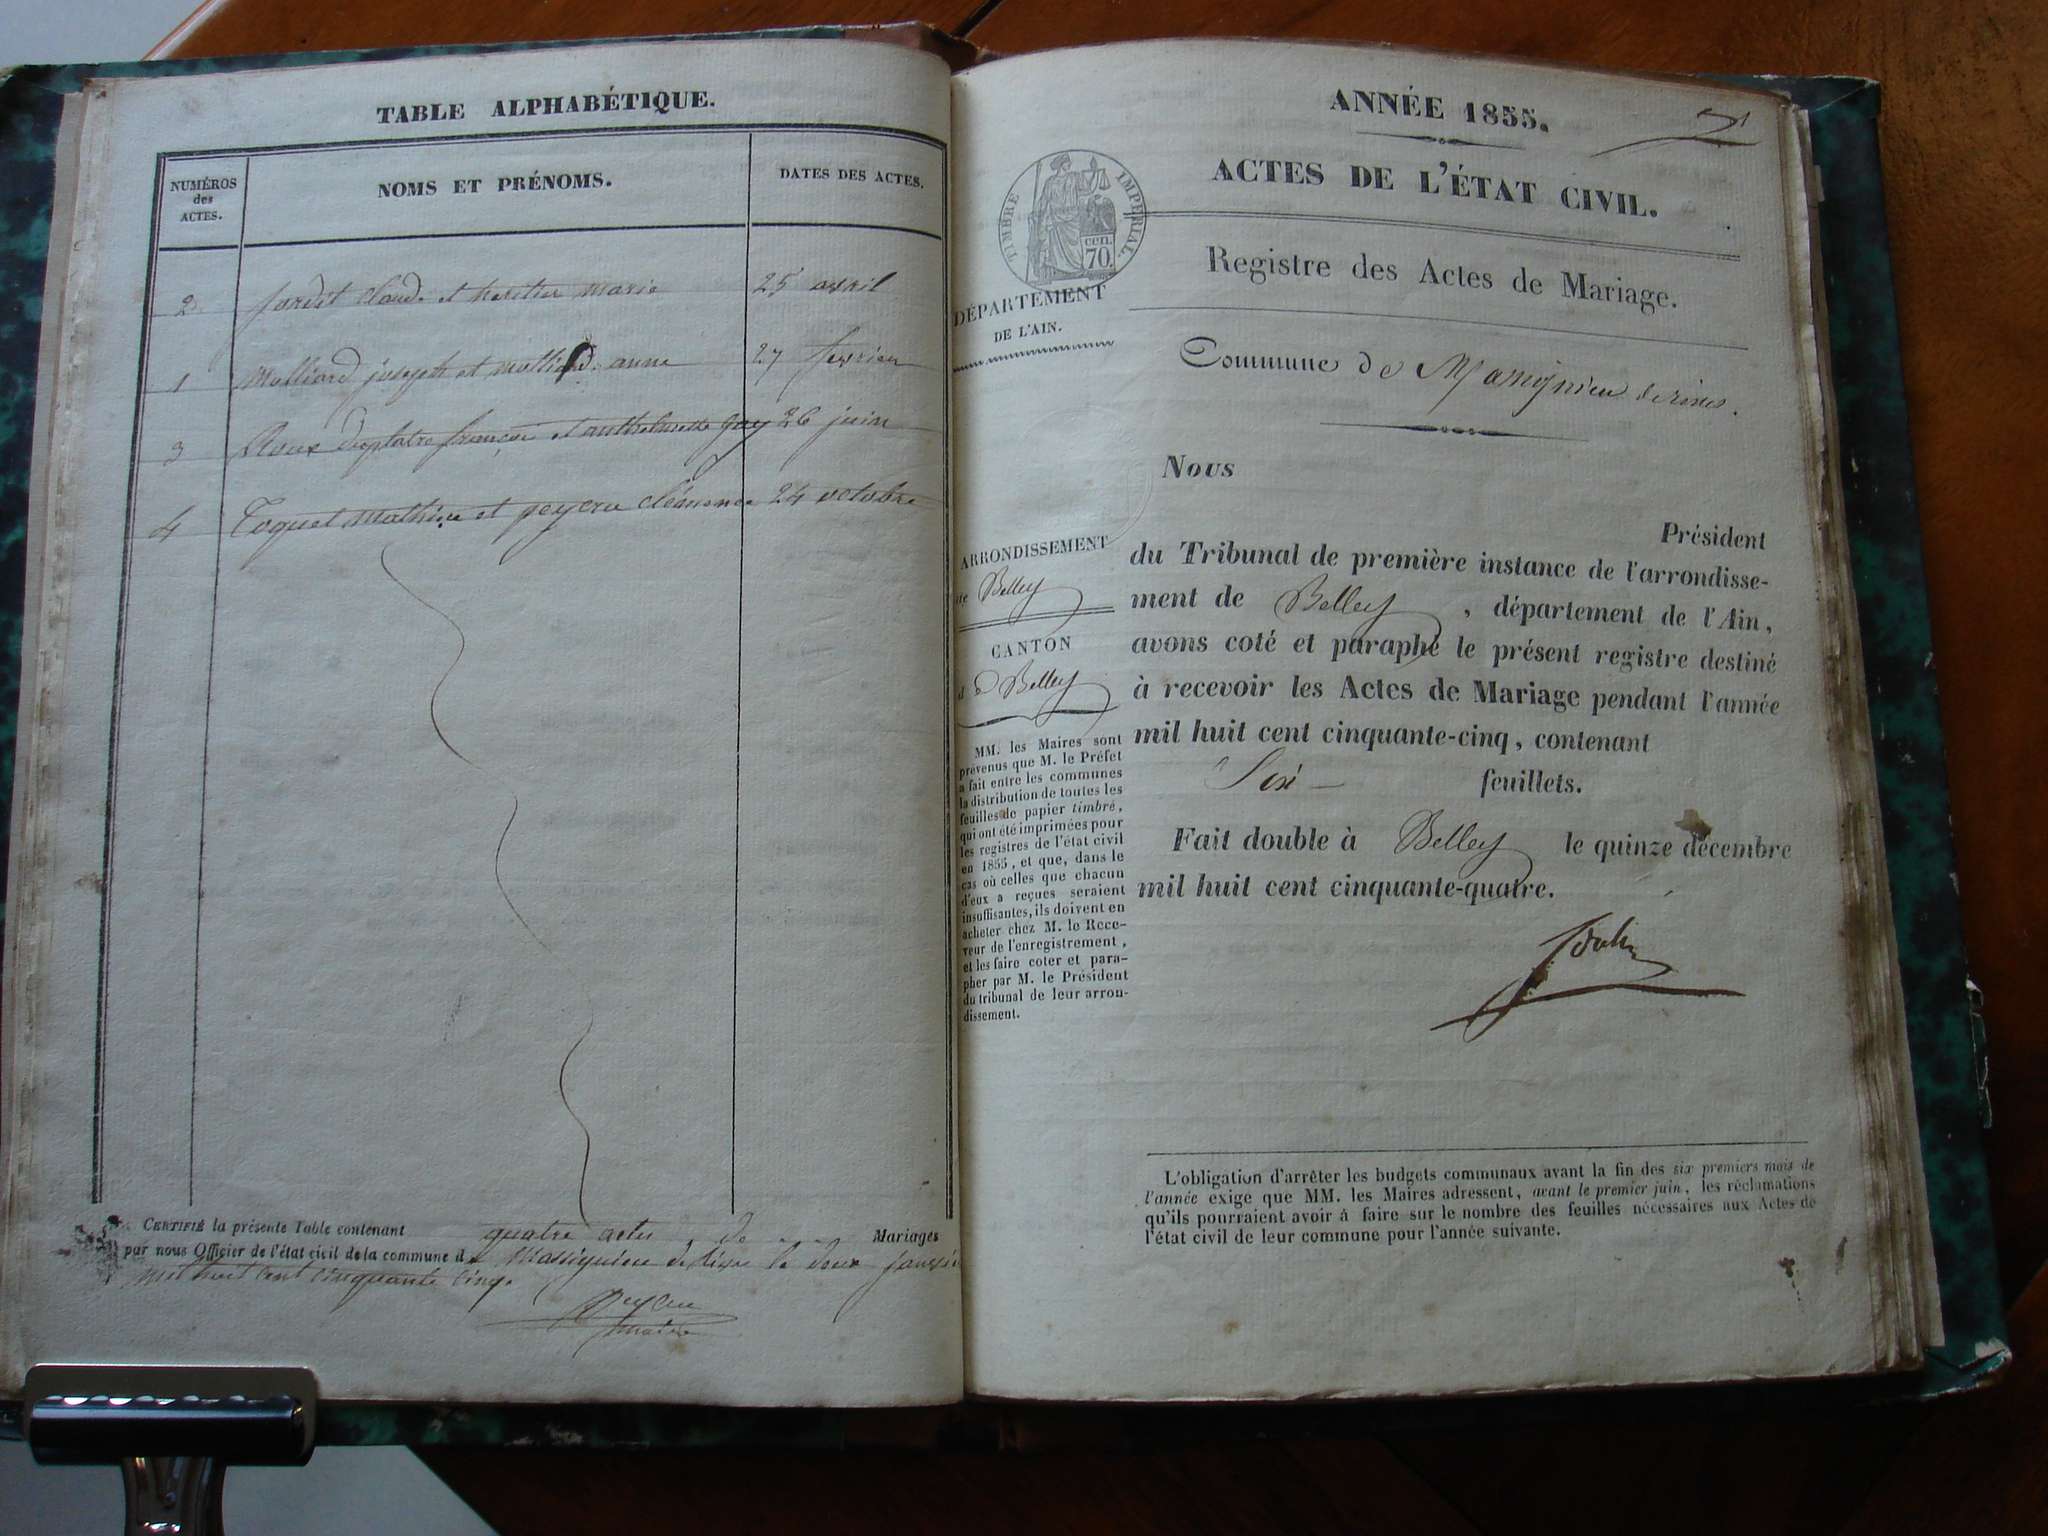 TABLE ALPHABÉTIQUE.
NUMÉROS
des
ACTES.
NOMS ET PRÉNOMS.
DATES DES ACTES.
2 jordit claude et heritier marie 25 avril
1 Molliard joseph et molliard anne 27 fevrier
3 Roux françois et anthelmette gay 26 juin
4 Toquet Mathieu et peycru clémence 24 octobre
CERTIFIÉ la présente Table contenant quatre actes de Mariages
par nous Officier de l'état civil de la commune de Massignieu de rives le deux janvier
mil huit cent cinquante cinq.
Peycru
maire
ANNÉE 1855.
ACTES DE L'ÉTAT CIVIL.
TIMBRE IMPÉRIAL
CEN.
70
Registre des Actes de Mariage.
DÉPARTEMENT
DE L'AIN.
Commune de Massignieu de rives.
ARRONDISSEMENT
de Belley
CANTON
d e Belley
MM. les Maires sont
prévenus que M. le Préfet
a fait entre les communes
la distribution de toutes les
feuilles de papier timbré,
qui ont été imprimées pour
les registres de l'état civil
en 1855, et que, dans le
cas où celles que chacun
d'eux a reçues seraient
insuffisantes, ils doivent en
acheter chez M. le Rece-
veur de l'enregistrement,
et les faire coter et para-
pher par M. le Président
du tribunal de leur arron-
dissement.
Nous
Président
du Tribunal de première instance de l'arrondisse-
ment de Belley, département de l'Ain,
avons coté et paraphé le présent registre destiné
à recevoir les Actes de Mariage pendant l'année
mil huit cent cinquante-cinq, contenant
Six feuillets.
Fait double à Belley le quinze décembre
mil huit cent cinquante-quatre.
L'obligation d'arrêter les budgets communaux avant la fin des six premiers mois de
l'année exige que MM. les Maires adressent, avant le premier juin, les réclamations
qu'ils pourraient avoir à faire sur le nombre des feuilles nécessaires aux Actes de
l'état civil de leur commune pour l'année suivante.